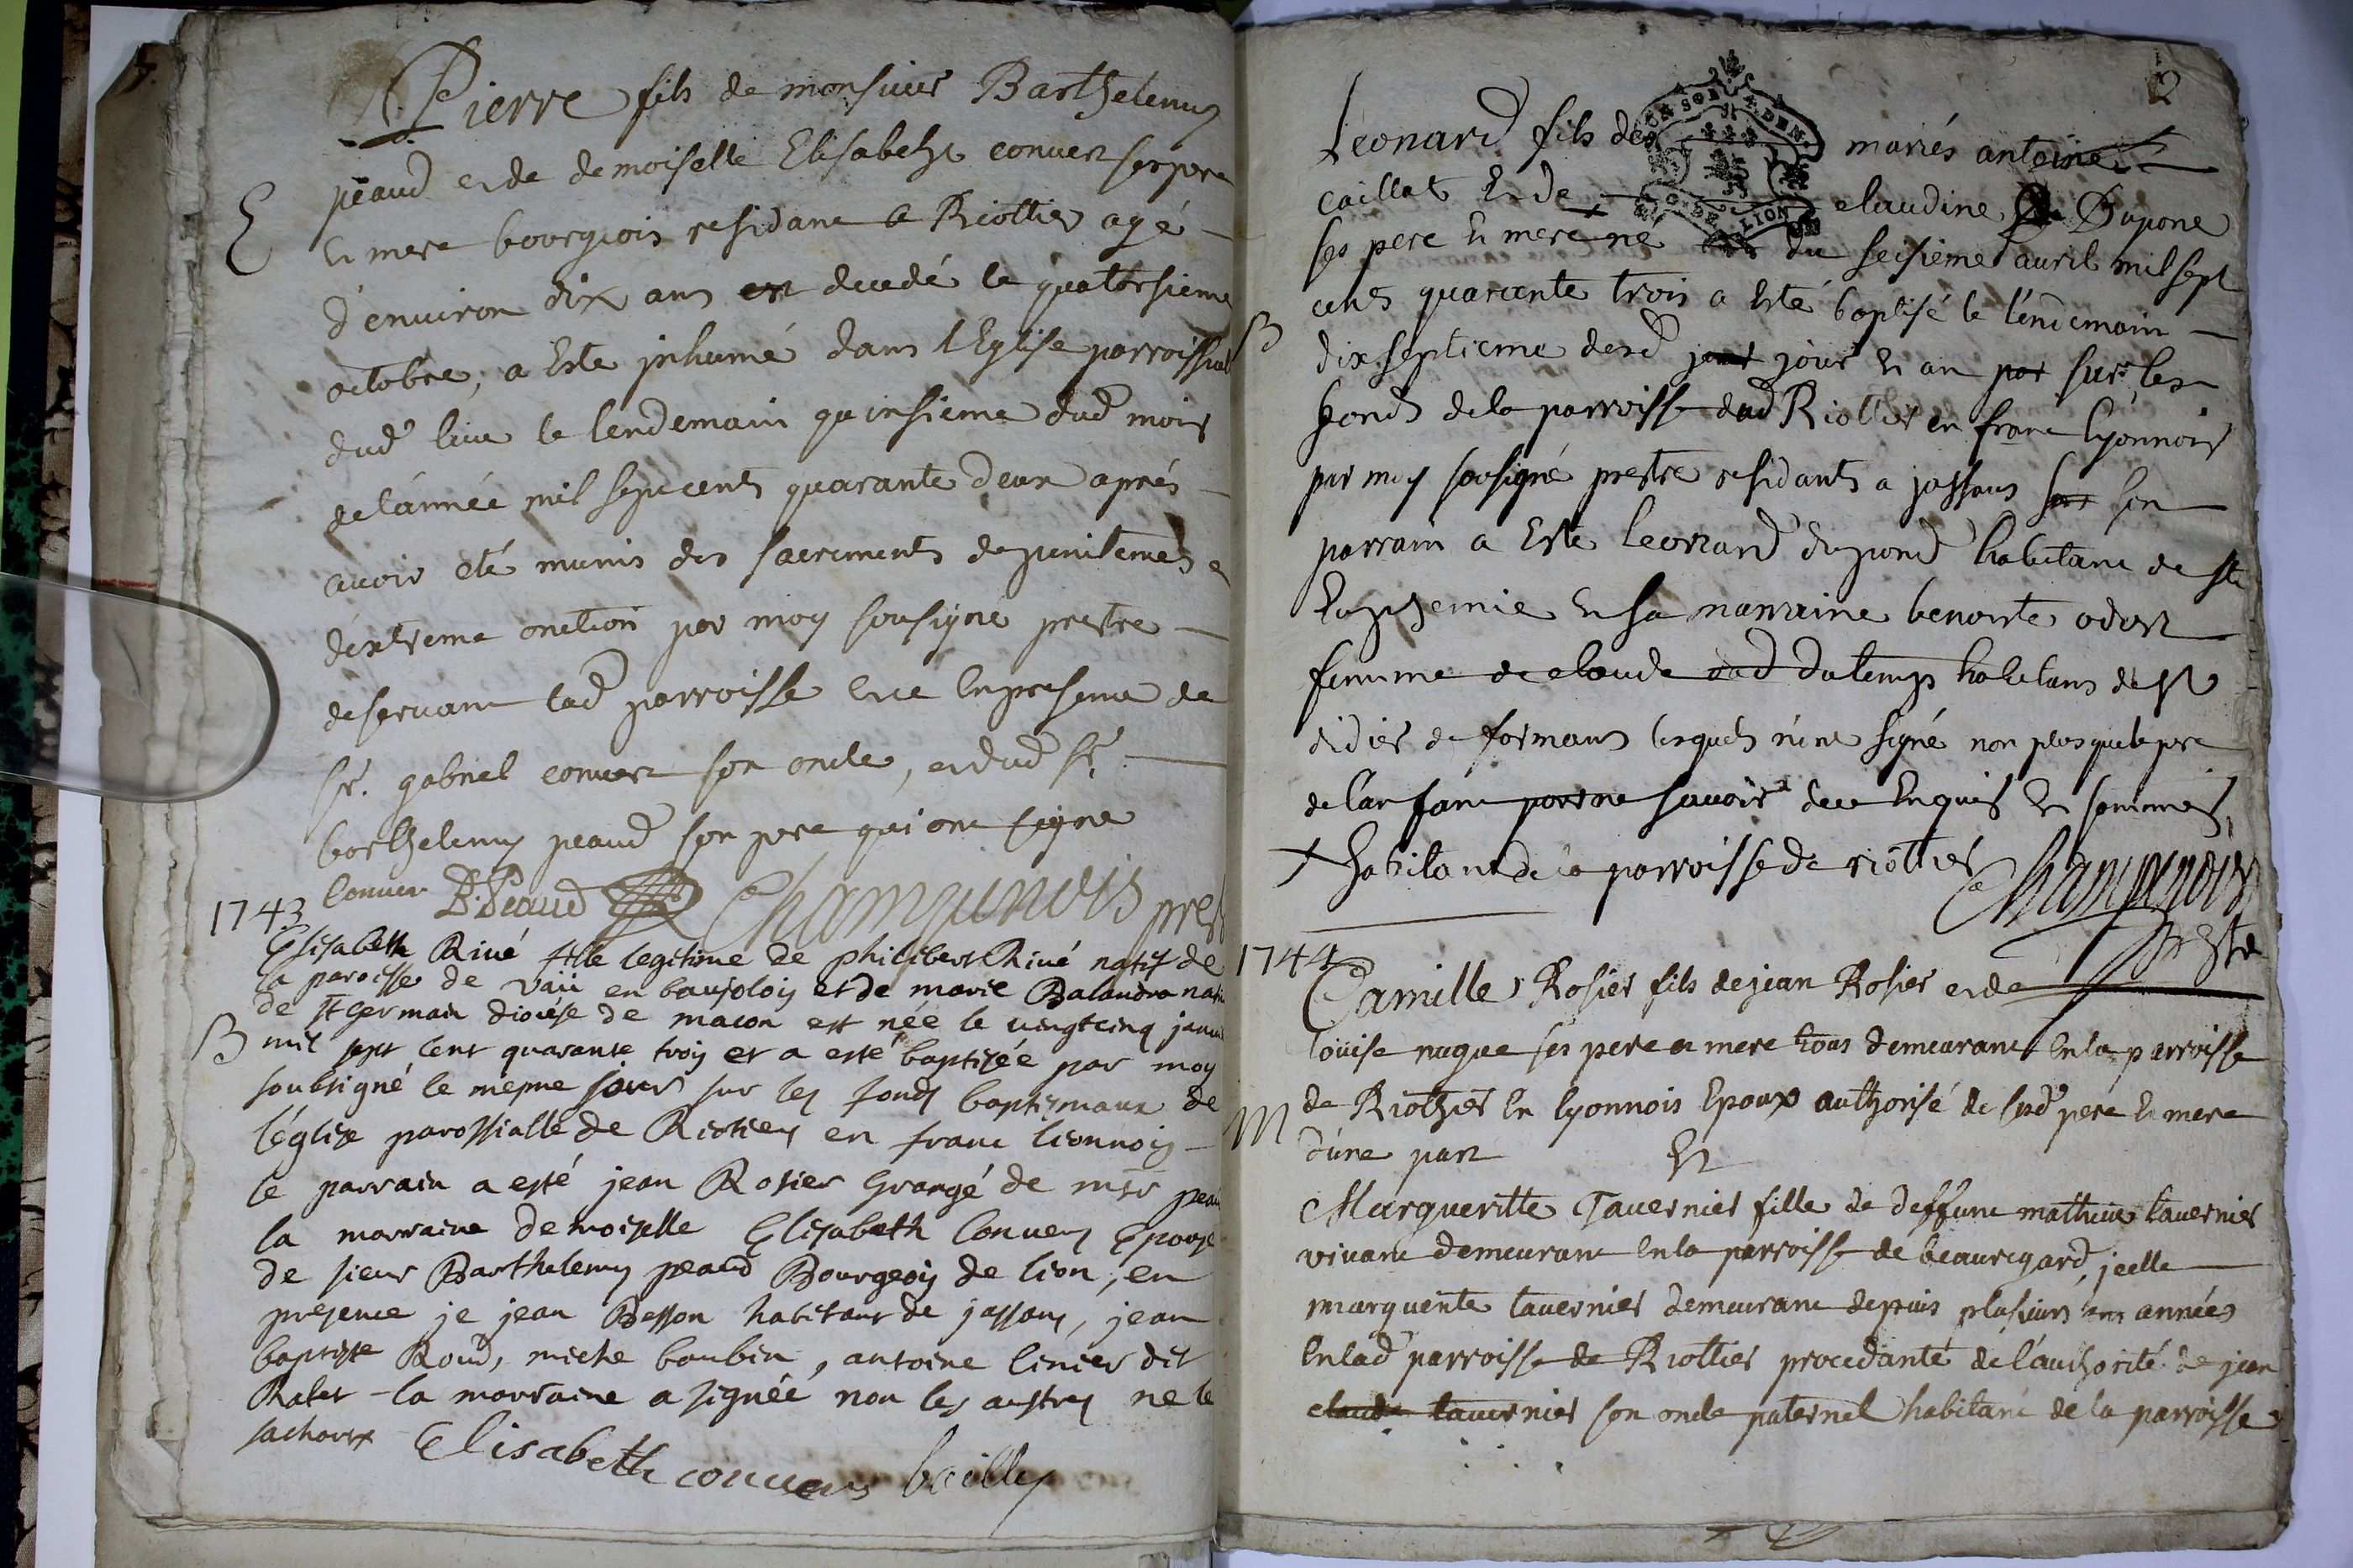 Pierre fils de monsieur Barthelemy
peaud et de demoiselle Elisabeht convert ses pere
E
et mere bourgeois residant a Riottier agé
d'environ dix ans est decedé le quatorsieme
octobre, a Esté jnhumé dans l'Eglise parroissial
dud lieu le lendemain quinsieme dud mois
de l'année mil sept cents quarante deux aprés
avoir eté munis des sacrements de penitences et
d'extreme onction par moy sousigné prestre
deservant lad parroisse Et ce En presence de
sr. gabriel convert son oncle, et dud sr.
barthelemy peaud son pere qui ont signe
Conver B. Peaud Champunois prest
1743
Elisabeth Rivé fille legitime de philibert Rivé natif de
la paroisse de vaü en baujolois et de marie Balandra nati
de st Germain diocése de macon est née le vingtcinq janvi
B
mil sept cent quarante trois et a esté baptizée par moy
soubsigné le mesme jour sur les fonds baptismaux de
l'église parossialle de Riotiers en franc lionnois
le parrain a esté jean Rosier Grangé de msr peau
la marraine demoizelle Elisabeth Convers Epouse
de sieur Barthelemy peaud Bourgeois de lion, en
presence je jean Besson habitant de jassans, jean
baptiste Roud, miche baubin, antoine linier dit
Rater - la marraine a signéé non les autres ne le
sachant
Elisabeth convers bailly
2
Leonard fils des mariés antoine
caillat Et de x claudine Dupont
ses pere et mere né du seisieme avril mil sept
cents quarante trois a Esté baptisé le lendemain
B
dixseptieme desd jour et an par sur les
fonds de la parroisse dud Riottier en franc lyonnois
par moy sousigné prestre residants a jassans son
parrain a Esté leonard dupond habitant de ste
Euphemie et sa marraine benoite odost
femme de claude dutemps habitans de st
didier de formans lesquels n'ont signé non plus que le pere
de l'anfant pour ne scavoir de ce Enquis et sommés,
x habitant de la parroisse de riottier
Champunois
prestre
1744
Camille Rosier fils de jean Rosier et de
loüise nuque ses pere et mere tous demeurant En la parroisse
de Riothier En lyonnois Epoux authorisé de sesd pere et mere
M
d'une part Et
Marguerite Tavernier fille de deffunt mathieu tavernier
vivant demeurant En la parroisse de beauregard, jcelle
marguerite tavernier demeurant depuis plusieurs années
En lad parroisse de Riottier procedante de l'authorité de jean
claude tavernier son oncle paternel habitant de la parroisse